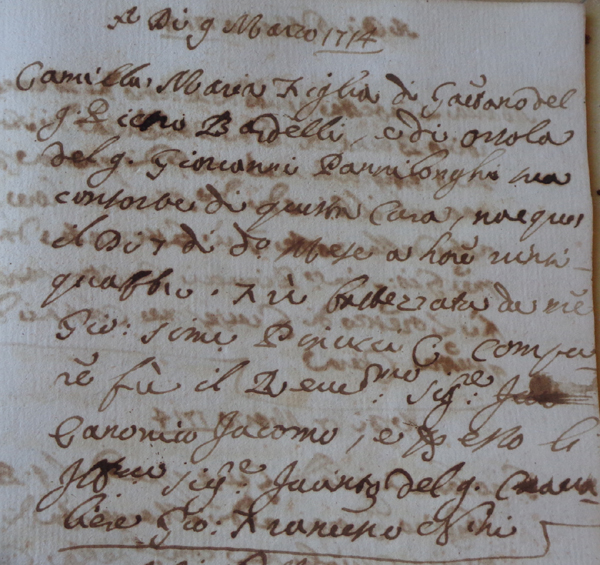 A Di 9 Marzo 1714
Camilla Maria Figlia di Gaetano del
q. Piero Bardelli, e di Orsola
del q. Giovanni Pannilonghi sua
consorte di questa Cura, nacque
il Di 7 di do. Mese a hore vinti
quattro. Fu battezzata da me
Gio: Pinucci C. compa-
re fù il Reue.mo Sigre.
Canonico Jacomo, e p esso li
Sigre. del q. Caua
liere Gio: Francesco